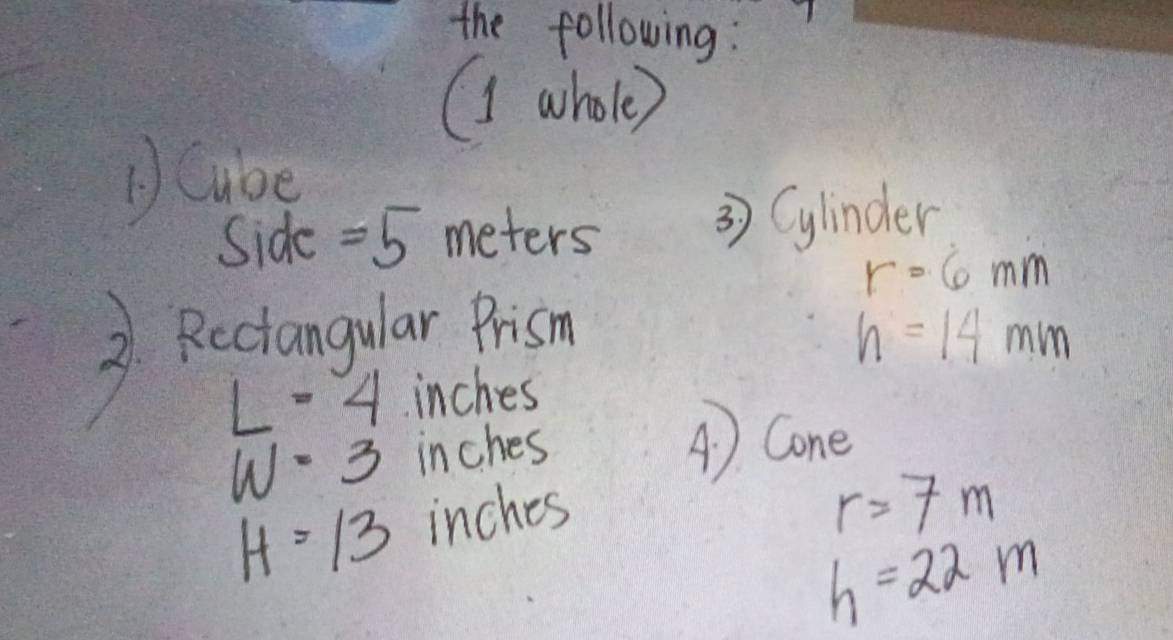 the following:
(1 whole)
1.) Cube
Side = 5 meters
2. Rectangular Prism
L = 4 inches
W = 3 inches
H = 13 inches
3.) Cylinder
r = 6 mm
h = 14 mm
4.) Cone
r = 7 m
h = 22 m